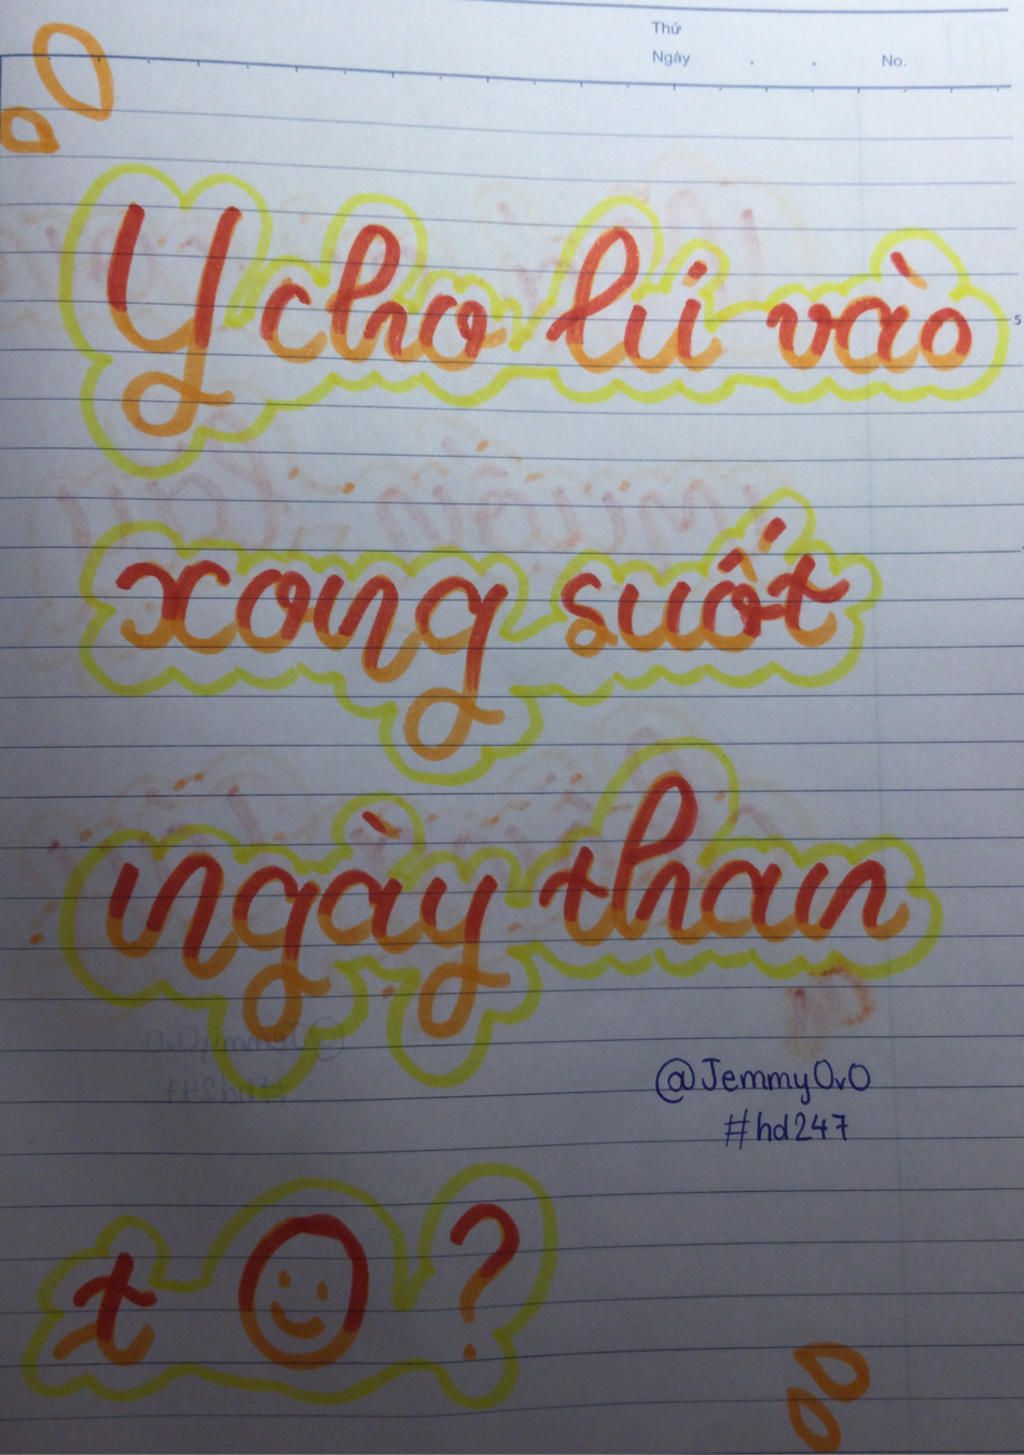 Thứ
Ngày . . No.
Y cho lui vào
5
xong suốt
ngày than
@JemmyOvO
#hd247
t ?